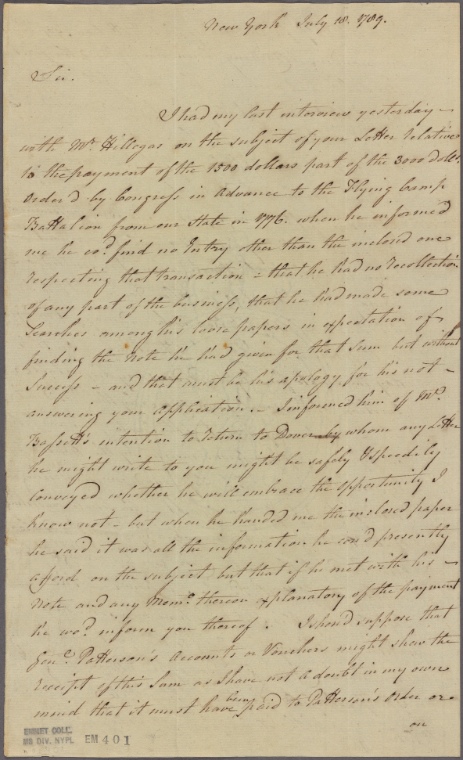 New York July 18. 1789.
Sir.
I had my last interview yesterday -
with Mr Hillegas on the subject of your Letter relative
to the payment of the 1500 dollars part of the 3000 dolls.
Order'd by Congress in Advance to the Flying Camp
Battalion from our State in 1776. when he inform'd
me he cod. find no Entry other than the inclosed one
respecting that transaction - that he had no recollection
of any part of the business, that he had made some
Searches among his loose papers in expectation of
finding the Note he had given for that Sum but without
Success - and that must be his apology for his not -
answering your Application. - I informed him of Mr.
Bassett's intention to return to Dover by whom any Letter
he might write to you might be safely & speedily
conveyed whether he will embrace the opportunity I
know not - but when he handed me the inclosed paper
he said it was all the information he coud presently
afford on the subject but that if he met with his -
Note and any Memo. thereon explanatory of the payment
he wod. inform you thereof. I shod suppose that
Genl. Patterson's Accounts or Vouchers might shew the
receipt of this Sum as I have not a doubt in my own
mind that it must have been paid to Patterson's Order or
on
EMMET COLL.
MS DIV. NYPL
EM 401